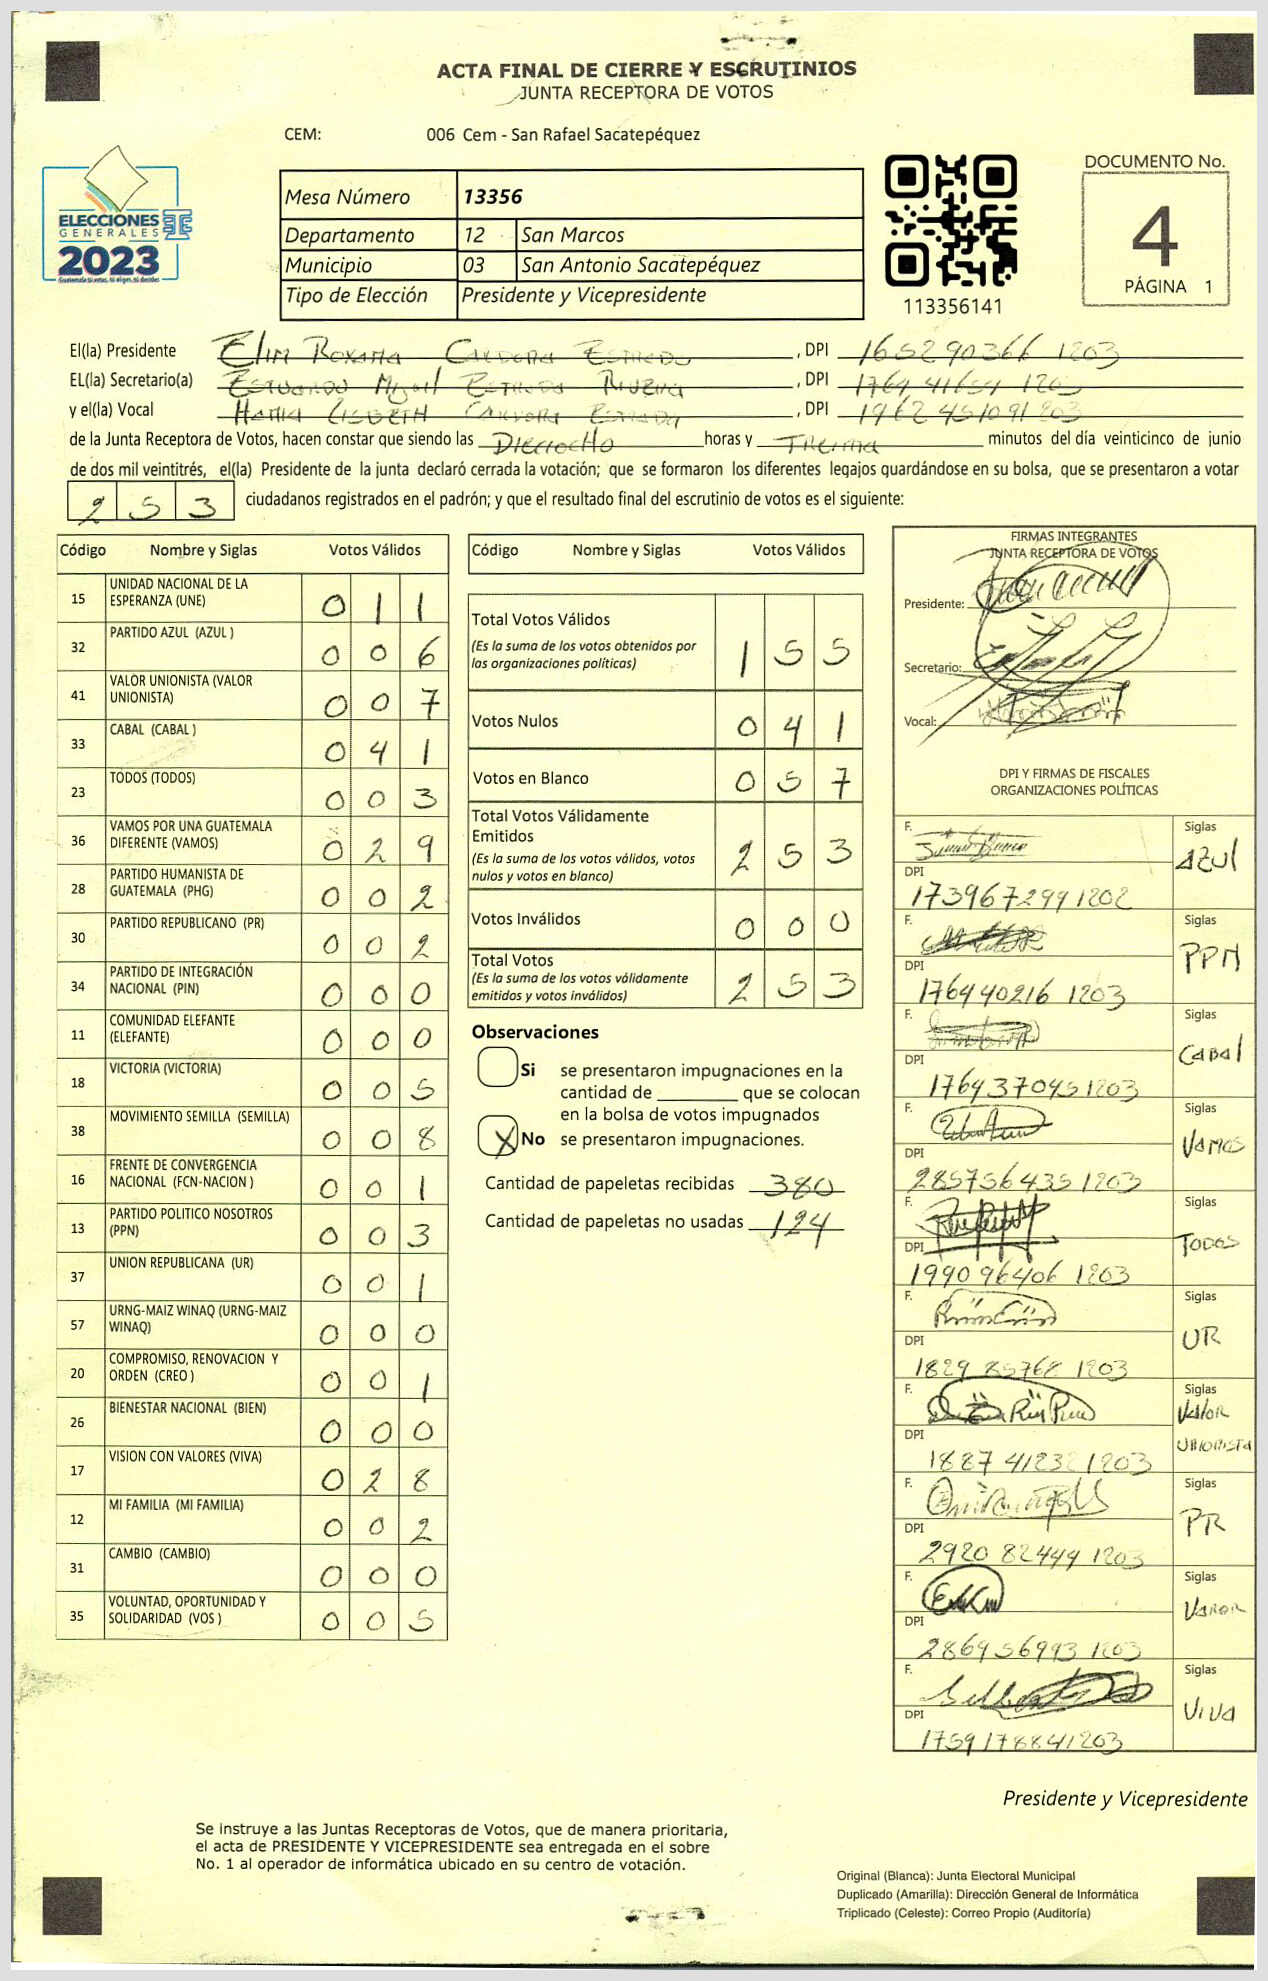 ACTA FINAL DE CIERRE Y ESCRUTINIOS
JUNTA RECEPTORA DE VOTOS
CEM: 006 Cem - San Rafael Sacatepéquez
ELECCIONES
GENERALES
2023
Mesa Número 13356
Departamento 12 San Marcos
Municipio 03 San Antonio Sacatepéquez
Tipo de Elección Presidente y Vicepresidente
113356141
DOCUMENTO No.
4
PÁGINA 1
El(la) Presidente Elim Roxana Cardona Estrado, DPI 165290366 1203
EL(la) Secretario(a) Estuardo Miguel Estrada Rivera, DPI 1764 41654 1203
y el(la) Vocal Lisbeth Cardona Estrada, DPI 1962 451091203
de la Junta Receptora de Votos, hacen constar que siendo las Dieciocho horas y Treinta minutos del día veinticinco de junio
de dos mil veintitrés, el(la) Presidente de la junta declaró cerrada la votación; que se formaron los diferentes legajos guardándose en su bolsa, que se presentaron a votar
253 ciudadanos registrados en el padrón; y que el resultado final del escrutinio de votos es el siguiente:
Código Nombre y Siglas Votos Válidos
15 UNIDAD NACIONAL DE LA
ESPERANZA (UNE) 011
32 PARTIDO AZUL (AZUL ) 006
41 VALOR UNIONISTA (VALOR
UNIONISTA) 007
33 CABAL (CABAL ) 041
23 TODOS (TODOS) 003
36 VAMOS POR UNA GUATEMALA
DIFERENTE (VAMOS) 029
28 PARTIDO HUMANISTA DE
GUATEMALA (PHG) 002
30 PARTIDO REPUBLICANO (PR) 002
34 PARTIDO DE INTEGRACIÓN
NACIONAL (PIN) 000
11 COMUNIDAD ELEFANTE
(ELEFANTE) 000
18 VICTORIA (VICTORIA) 005
38 MOVIMIENTO SEMILLA (SEMILLA) 008
16 FRENTE DE CONVERGENCIA
NACIONAL (FCN-NACION ) 001
13 PARTIDO POLITICO NOSOTROS
(PPN) 003
37 UNION REPUBLICANA (UR) 001
57 URNG-MAIZ WINAQ (URNG-MAIZ
WINAQ) 000
20 COMPROMISO, RENOVACION Y
ORDEN (CREO ) 001
26 BIENESTAR NACIONAL (BIEN) 000
17 VISION CON VALORES (VIVA) 028
12 MI FAMILIA (MI FAMILIA) 002
31 CAMBIO (CAMBIO) 000
35 VOLUNTAD, OPORTUNIDAD Y
SOLIDARIDAD (VOS ) 005
Código Nombre y Siglas Votos Válidos
Total Votos Válidos
(Es la suma de los votos obtenidos por
las organizaciones políticas) 155
Votos Nulos 041
Votos en Blanco 057
Total Votos Válidamente
Emitidos
(Es la suma de los votos válidos, votos
nulos y votos en blanco) 253
Votos Inválidos 000
Total Votos
(Es la suma de los votos válidamente
emitidos y votos inválidos) 253
Observaciones
Si se presentaron impugnaciones en la
cantidad de ________ que se colocan
en la bolsa de votos impugnados
X No se presentaron impugnaciones.
Cantidad de papeletas recibidas 380
Cantidad de papeletas no usadas 124
FIRMAS INTEGRANTES
JUNTA RECEPTORA DE VOTOS
Presidente:
Secretario:
Vocal:
DPI Y FIRMAS DE FISCALES
ORGANIZACIONES POLÍTICAS
F. Siglas
AZUL
DPI
173967299 1202
F. Siglas
PPN
DPI
176440216 1203
F. Siglas
CABAL
DPI
176437045 1203
F. Siglas
VAMOS
DPI
285756435 1203
F. Siglas
TODOS
DPI
199096406 1203
F. Siglas
UR
DPI
1829 85768 1203
F. Siglas
VALOR
UNIONISTA
DPI
1887 41232 1203
F. Siglas
PR
DPI
2920 82449 1203
F. Siglas
DPI
286956993 1203
F. Siglas
VIVA
DPI
1759178841203
Presidente y Vicepresidente
Se instruye a las Juntas Receptoras de Votos, que de manera prioritaria,
el acta de PRESIDENTE Y VICEPRESIDENTE sea entregada en el sobre
No. 1 al operador de informática ubicado en su centro de votación.
Original (Blanca): Junta Electoral Municipal
Duplicado (Amarilla): Dirección General de Informática
Triplicado (Celeste): Correo Propio (Auditoría)